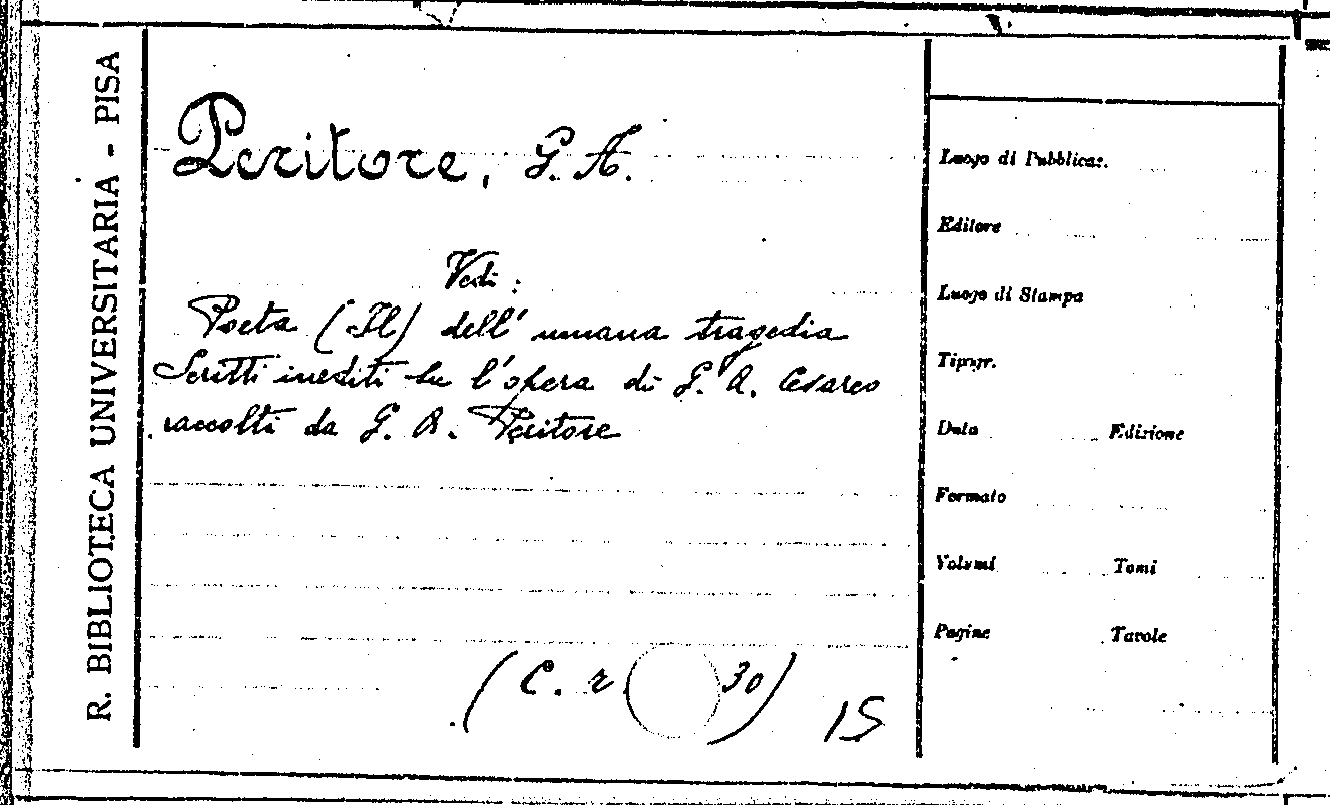 R. BIBLIOTECA UNIVERSITARIA - PISA
Peritore, G. A.
Vedi:
Poeta (Il) dell' umana tragedia
Scritti inediti su l'opera di G. A. Cesareo
raccolti da G. A. Peritore
(C. r 30)
15
Luogo di Pubblicaz.
Editore
Luogo di Stampa
Tipogr.
Data Edizione
Formato
Volumi Tomi
Pagine Tavole